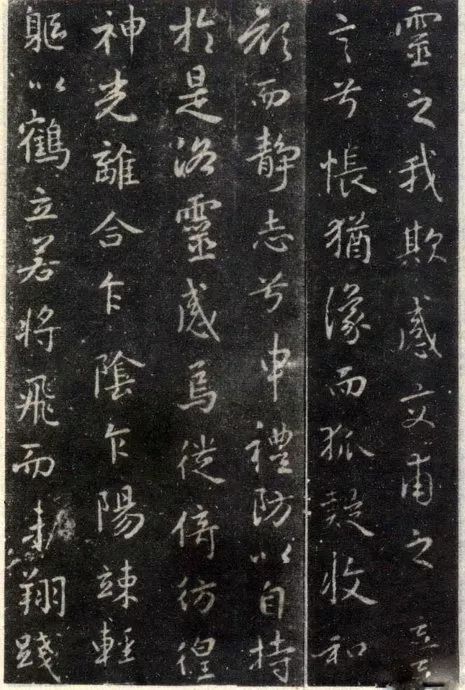 靈之我欺感交甫之
言兮悵猶豫而狐疑收和
顏而靜志兮申禮防以自持
於是洛靈感焉徙倚彷徨
神光離合乍陰乍陽竦輕
軀以鶴立若將飛而未翔踐